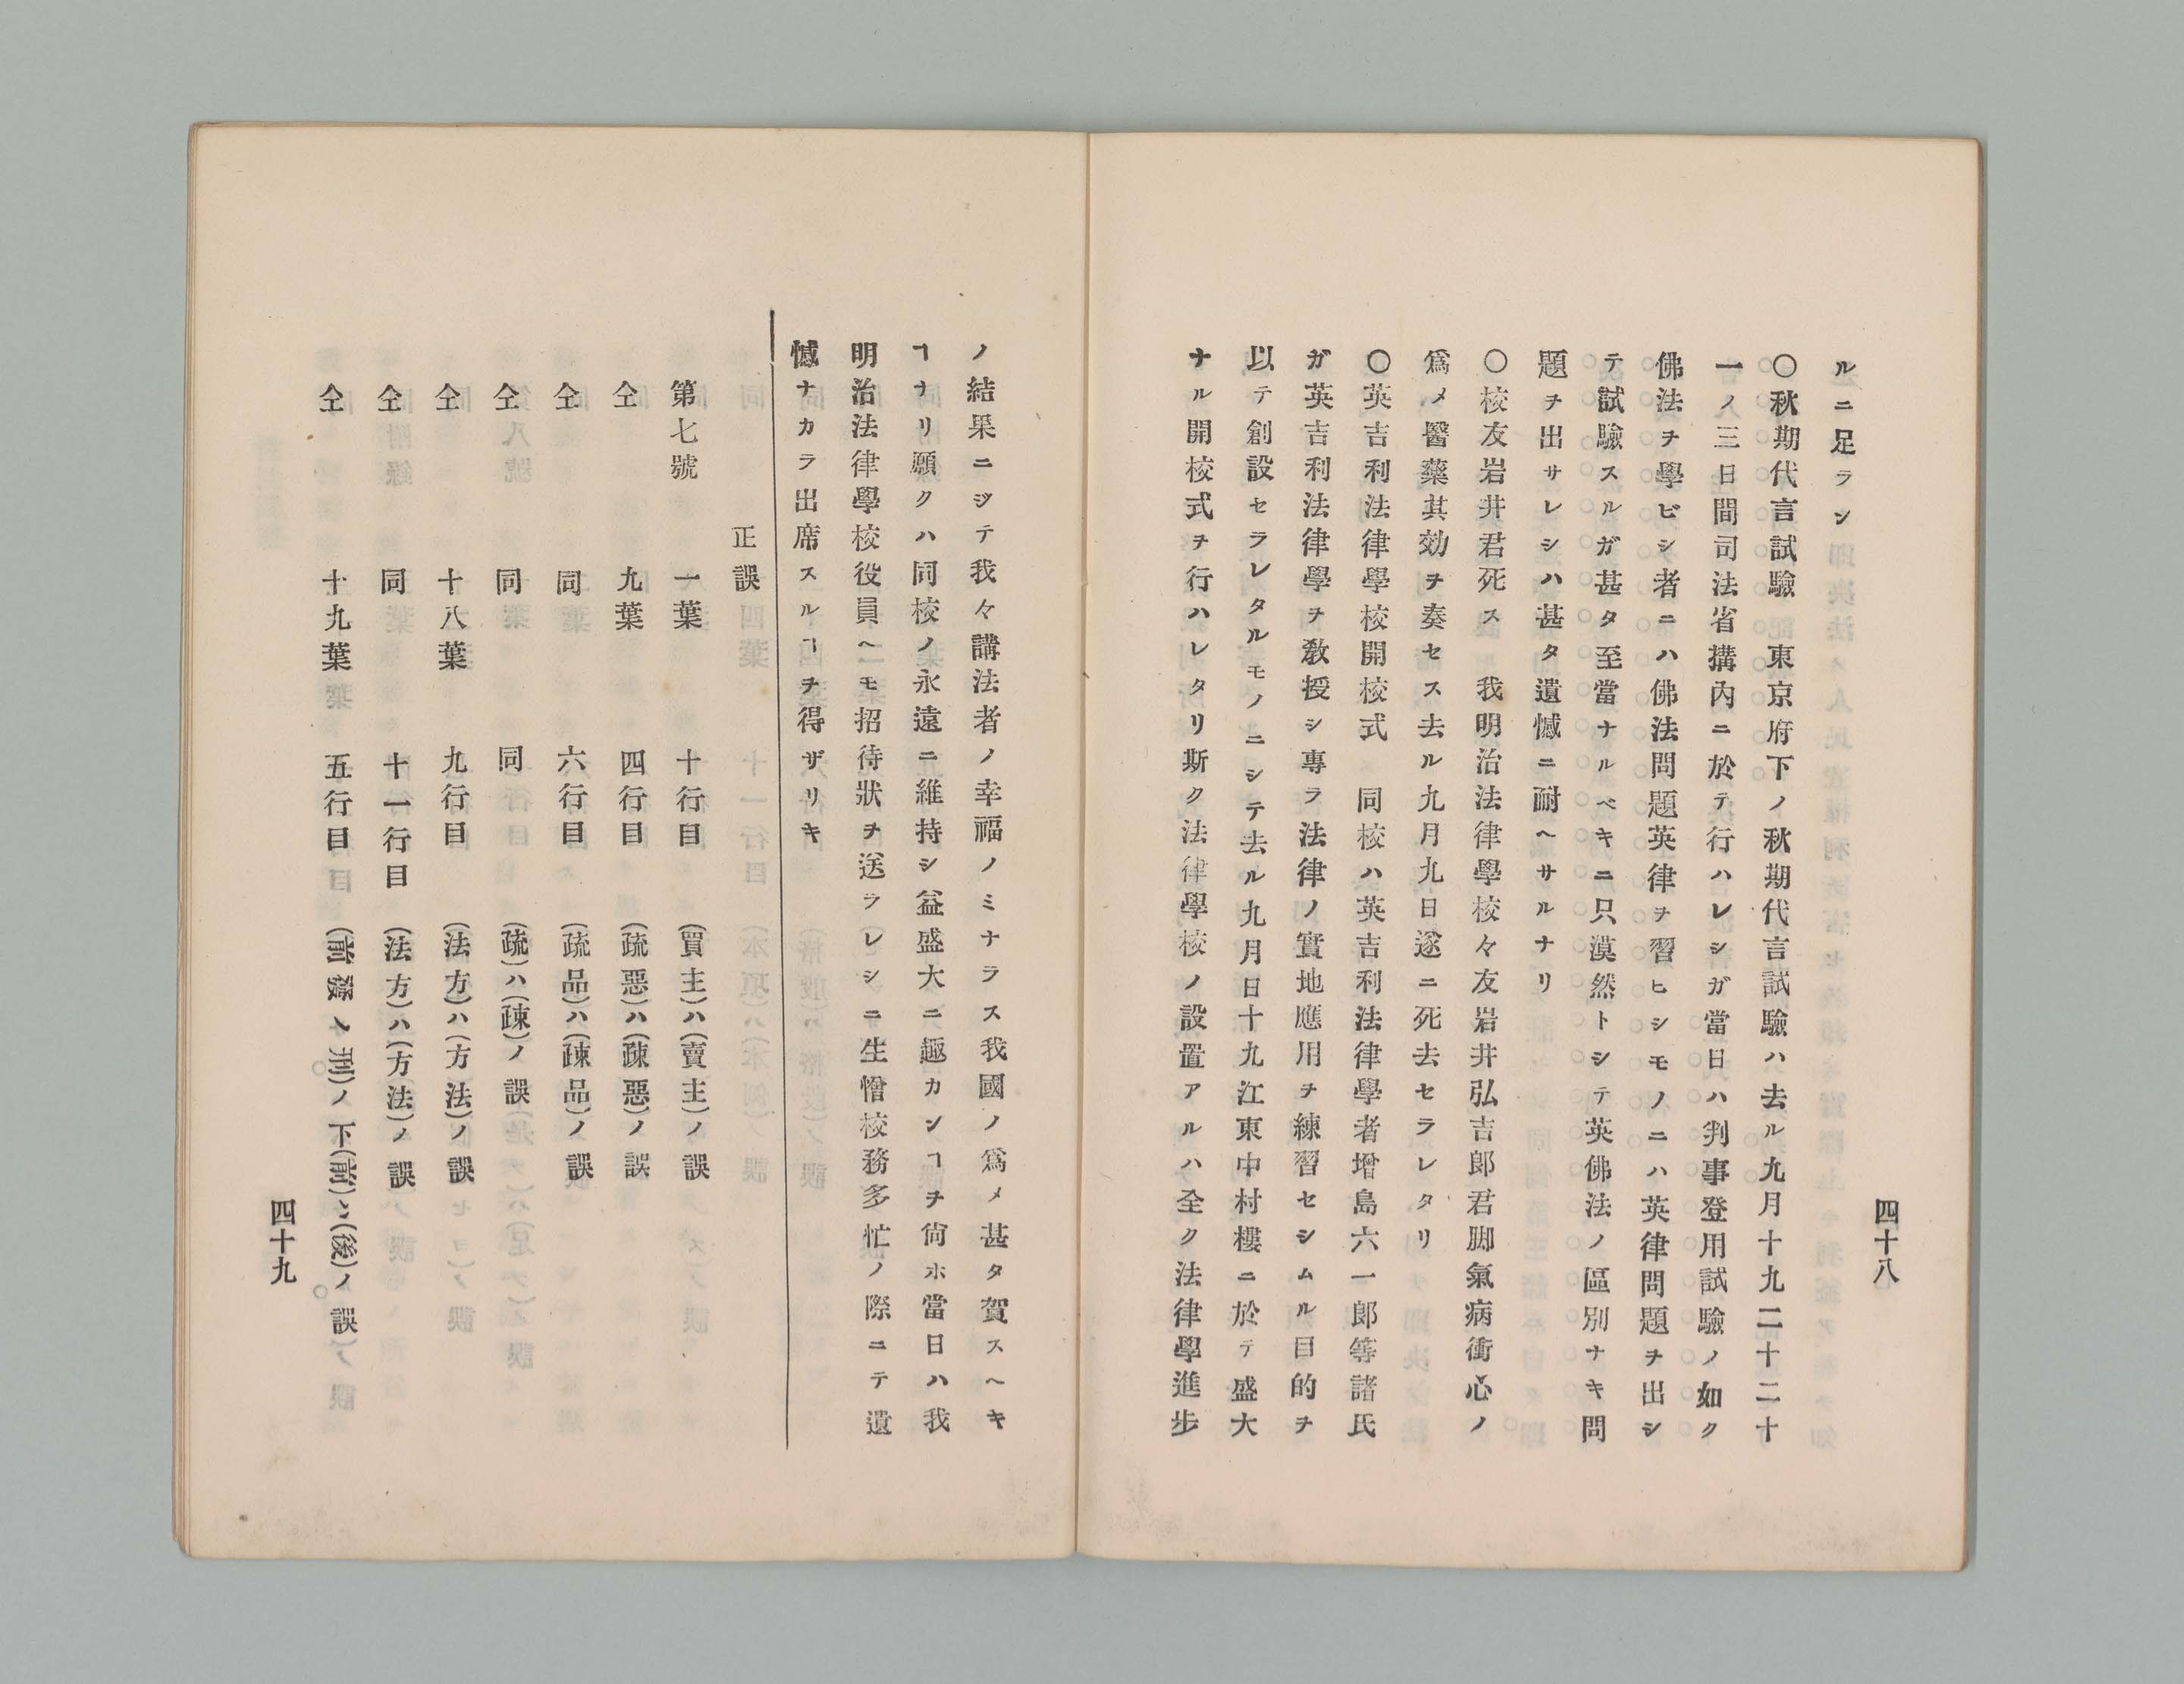 ルニ足ラン
〇秋期代言試驗 東京府下ノ秋期代言試驗ハ去ル九月十九二十二十
一ノ三日間司法省搆內ニ於テ行ハレシガ當日ハ判事登用試驗ノ如ク
佛法ヲ學ビシ者ニハ佛法問題英律ヲ習ヒシモノニハ英律問題ヲ出シ
テ試驗スルガ甚タ至當ナルベキニ只漠然トシテ英佛法ノ區別ナキ問
題ヲ出サレシハ甚タ遺憾ニ耐ヘサルナリ
〇校友岩井君死ス 我明治法律學校々友岩井弘吉郎君脚氣病衝心ノ
爲メ醫藥其効ヲ奏セス去ル九月九日遂ニ死去セラレタリ
〇英吉利法律學校開校式 同校ハ英吉利法律學者增島六一郎等諸氏
ガ英吉利法律學ヲ敎授シ專ラ法律ノ實地應用ヲ練習セシムル目的ヲ
以テ創設セラレタルモノニシテ去ル九月日十九江東中村樓ニ於テ盛大
ナル開校式ヲ行ハレタリ斯ク法律學校ノ設置アルハ全ク法律學進步
四十八
ノ結果ニシテ我々講法者ノ幸福ノミナラス我國ノ爲メ甚タ賀スヘキ
ヿナリ願クハ同校ノ永遠ニ維持シ益盛大ニ趣カンヿヲ尙ホ當日ハ我
明治法律學校役員ヘモ招待狀ヲ送ラレシニ生憎校務多忙ノ際ニテ遺
憾ナカラ出席スルヿヲ得ザリキ
正誤
第七號 一葉 十行目 (買主)ハ(賣主)ノ誤
仝 九葉 四行目 (疏惡)ハ(疎惡)ノ誤
仝 同 六行目 (疏品)ハ(疎品)ノ誤
仝 同 同 (疏)ハ(疎)ノ誤
仝 十八葉 九行目 (法方)ハ(方法)ノ誤
仝 同 十一行目 (法方)ハ(方法)ノ誤
仝 十九葉 五行目 ノ刑)ノ下(前)ハ(後)ノ誤
四十九